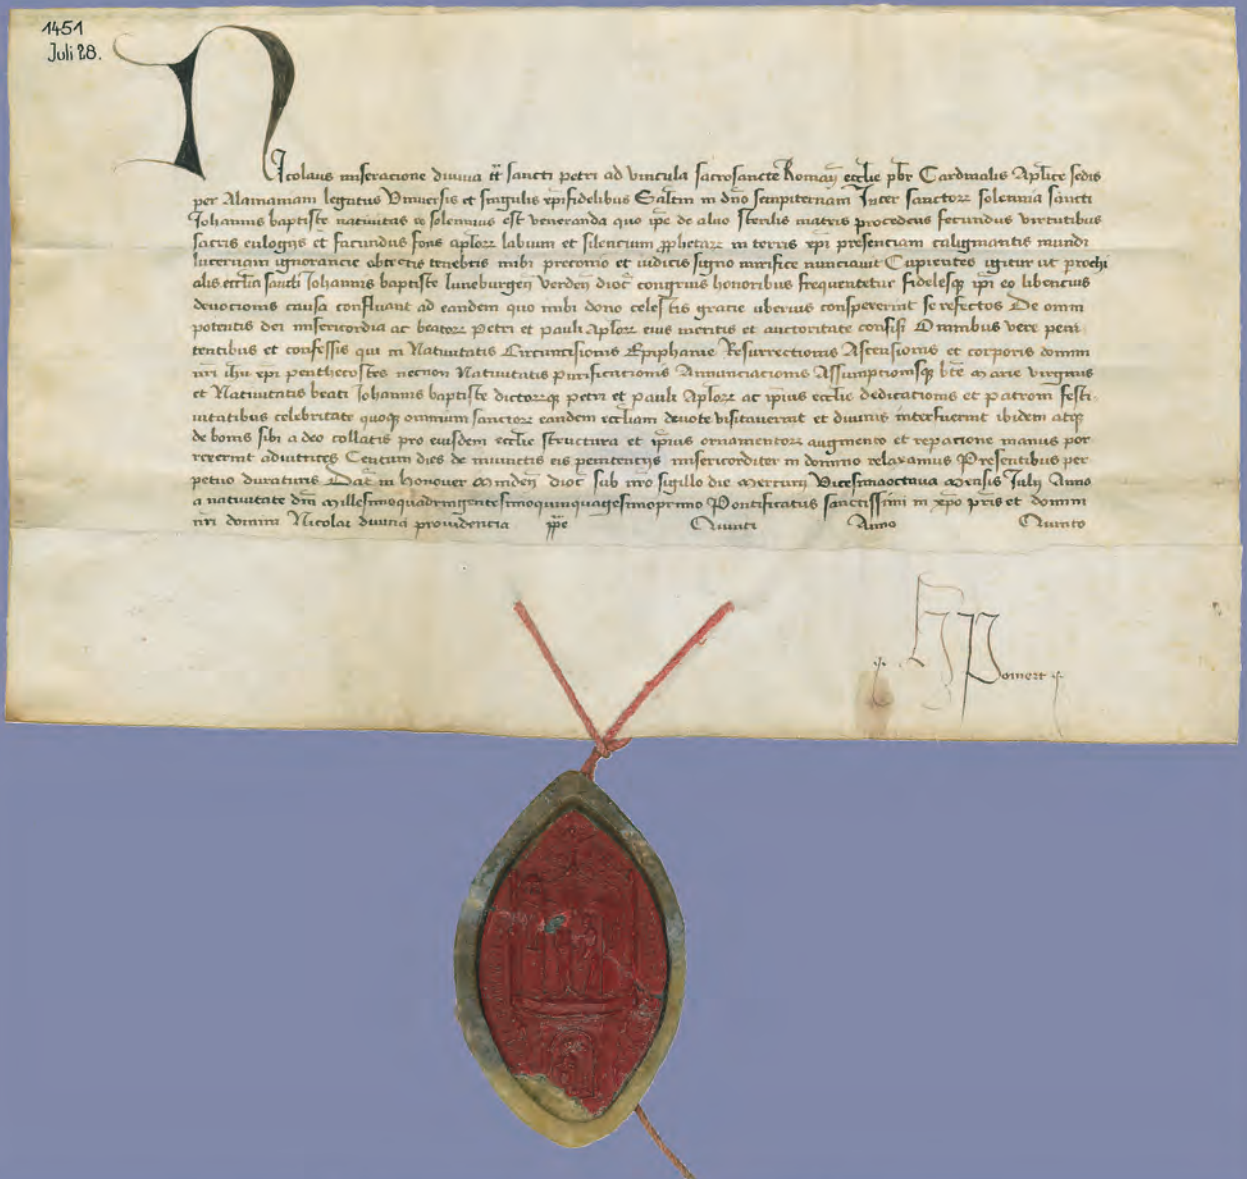 1451
Juli 28.
Nicolaus miseracione divina tt̄ sancti petri ad vincula sacrosancte Romañ eccl̄ie pb̄r Cardinalis Apl̄ice sedis
per Alamaniam legatus Universis et singulis xp̄ifidelibus Salt̄m in dn̄o sempiternam Inter sanctoꝝ solennia sancti
Johannis baptiste nativitas eo solennius est veneranda quo ip̄e de alvo sterilis matris procedens fecundus virtutibus
sacris eulogijs et facundus fons apl̄oꝝ labium et silencium ꝓphetaꝝ in terris xp̄i presenciam caligmantis mundi
lucernam ignorancie obtectis tenebris mibi preconio et indicis signo mirifice nunciavit Cupientes igitur ut prochi
alis eccl̄ia sancti Johannis baptiste luneburgeñ verdeñ dioc̄ congruis honoribus frequentetur fidelesqꝫ ip̄i eo libencius
devocionis causa confluant ad eandem quo inibi dono celestis gracie uberius conspexerint se refectos De omni
potentis dei misericordia ac beatoꝝ Petri et pauli Apl̄oꝝ eius meritis et auctoritate confisi Omnibus vere peni
tentibus et confessis qui in Nativitatis Circumcisionis Epiphanie Resurrectionis Ascensionis et corporis domini
nr̄i ih̄u xp̄i penthecostes necnon Nativitatis purificacionis Annunciacionis Assumptionisqꝫ bt̄e Marie virginis
et Nativitatis beati Johannis baptiste dictoꝝqꝫ petri et pauli Apl̄oꝝ ac ip̄ius eccl̄ie dedicationis et patroni festi
vitatibus celebritate quoqꝫ omnium sanctoꝝ eandem eccl̄iam devote visitaverint et divinis interfuerint ibidem atqꝫ
de bonis sibi a deo collatis pro eiusdem eccl̄ie structura et ip̄ius ornamentoꝝ augmento et reparacione manus por
rexerint adiutrices Centum dies de iniunctis eis penitencijs misericorditer in domino relaxamus Presentibus per
petuo duraturis Dat̄ in Honover Mindeñ dioc̄ sub nr̄o sigillo die Mercurij Vicesimaoctava Mensis Julij Anno
a nativitate dn̄i Millesimoquadringentesimoquinquagesimoprimo Pontificatus sanctissimi in xp̄o pr̄is et domini
nr̄i domini Nicolai divina providencia pp̄e Quinti Anno Quinto
H Pomert